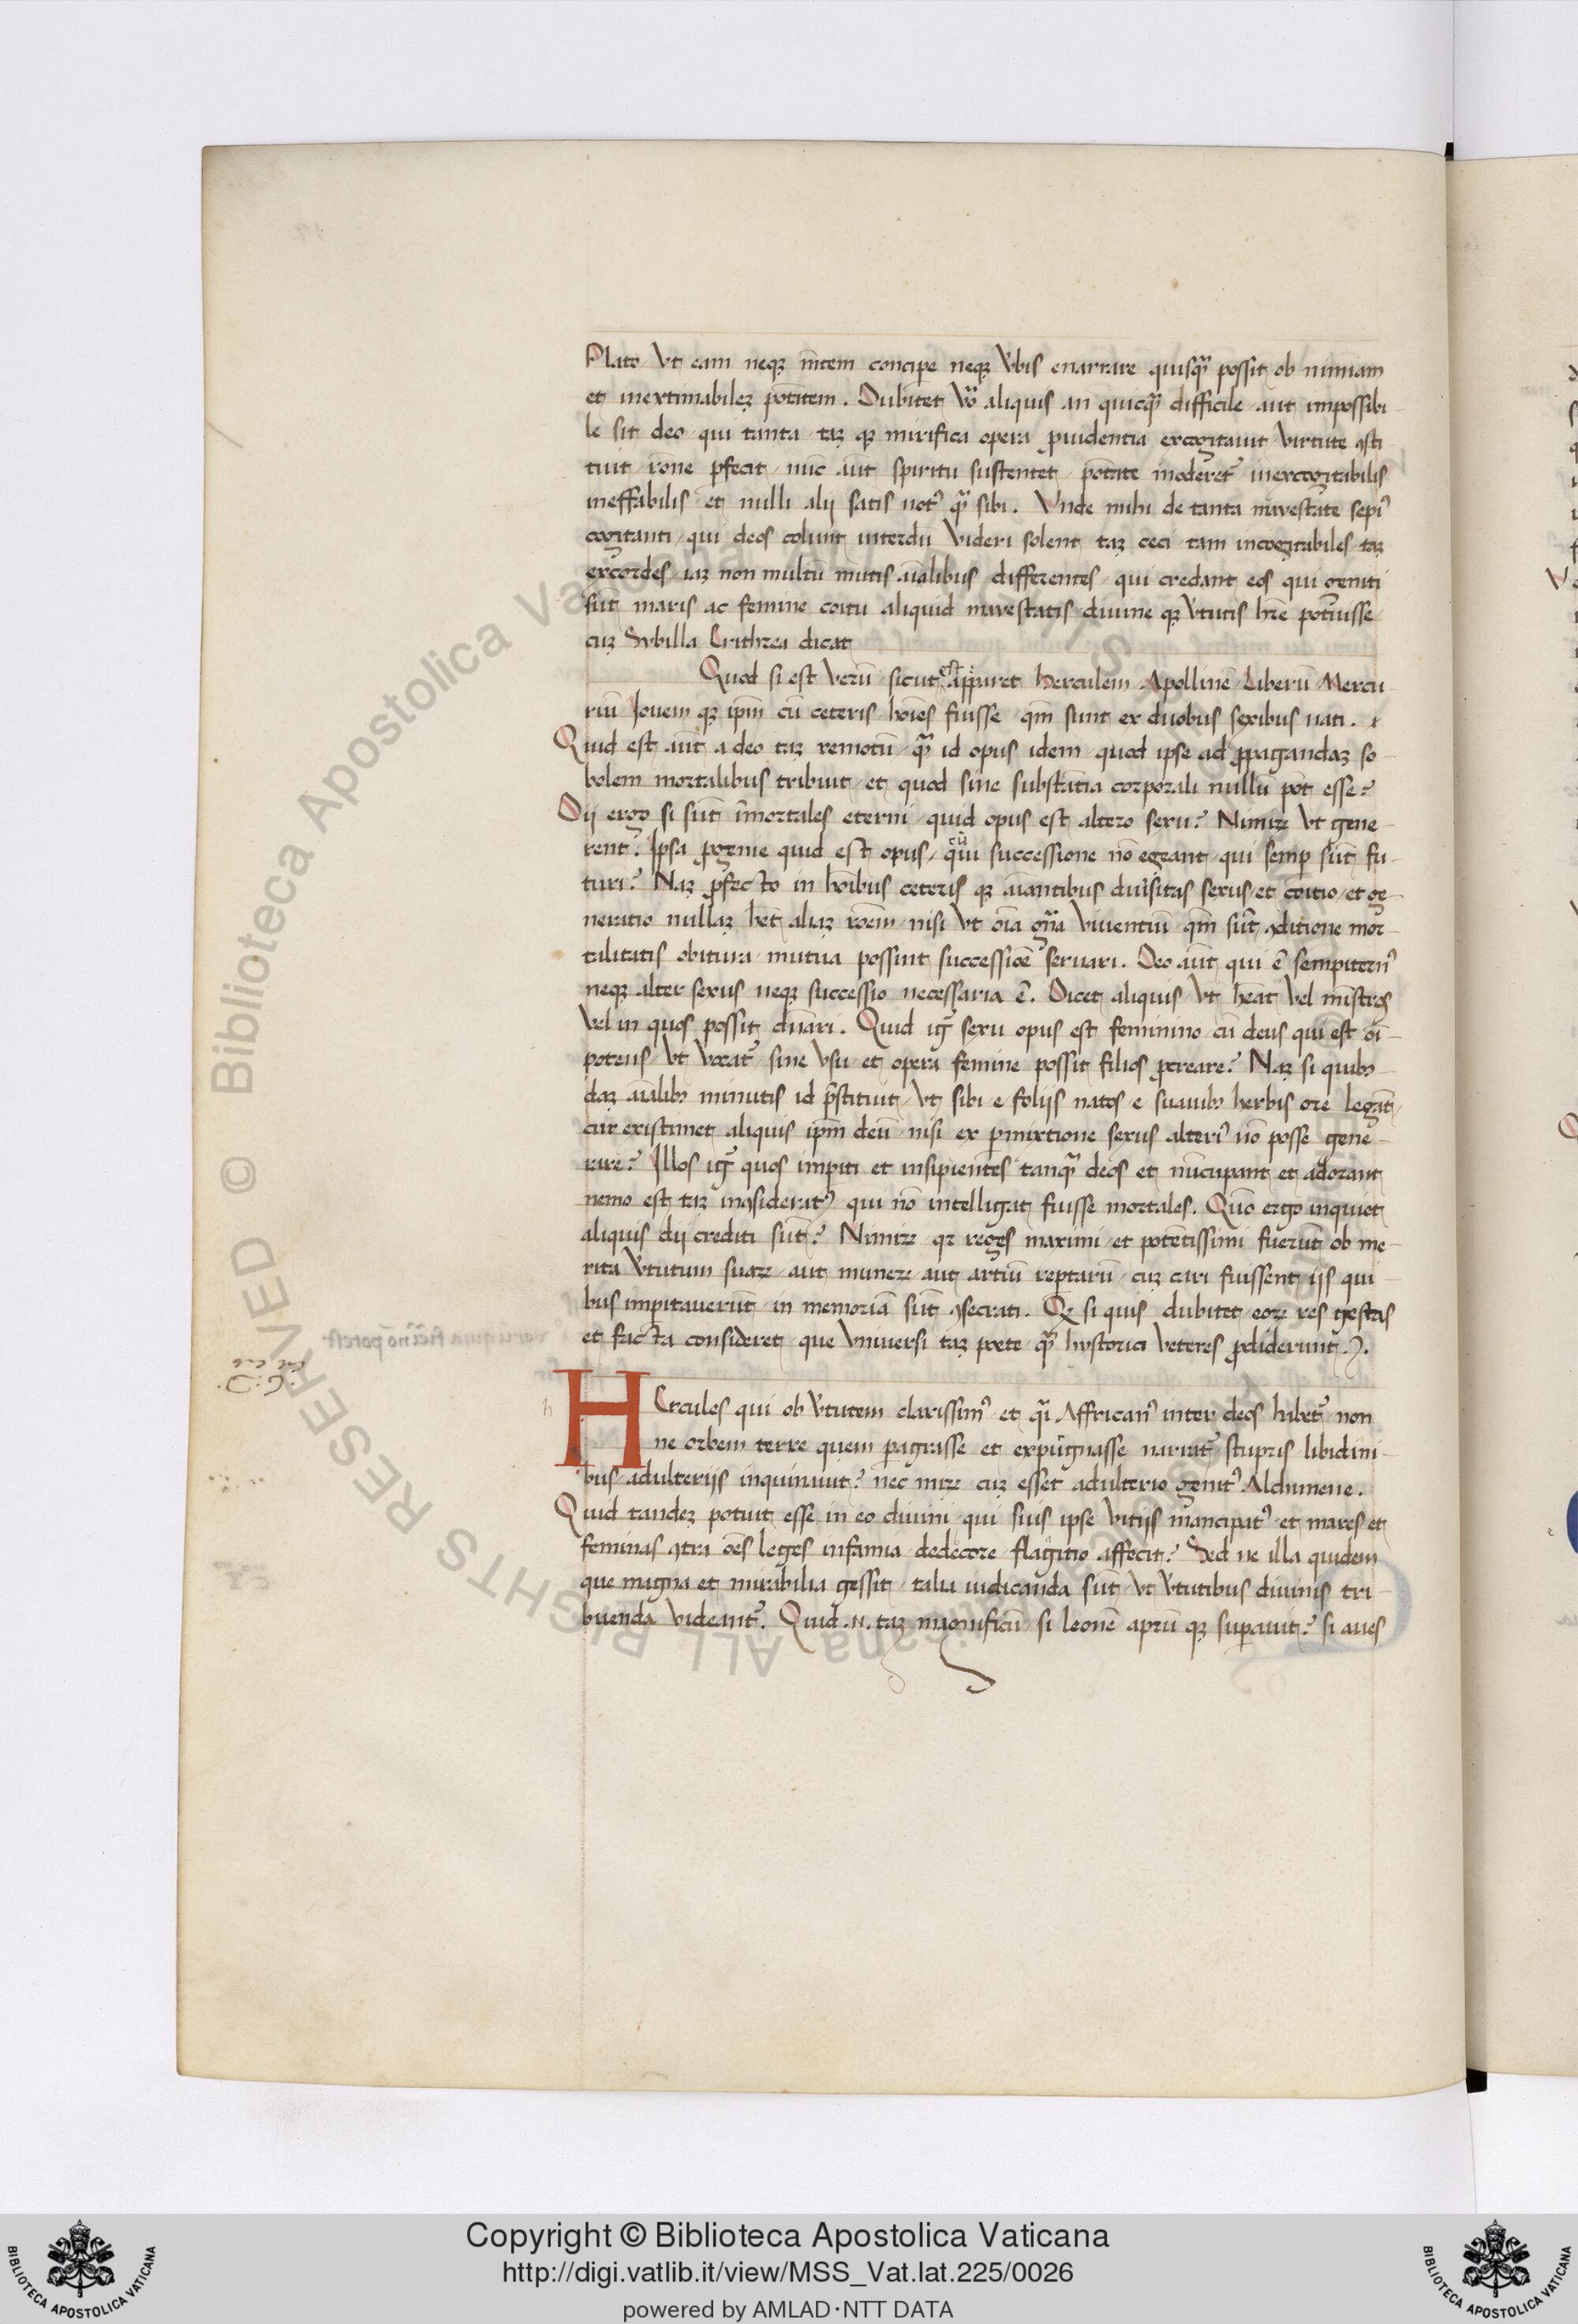 Plato ut eam neqꝫ mẽtem concipe neqꝫ v̾bis enarrare quisq̃ possit ob nimiam
et inextimabileꝫ põtitem. Dubitet vo᷈ aliquis an quicq̃ difficile aut impossibi-
le sit deo qui tanta taꝫ qꝫ mirifica opera ꝓuidentia excogitauit virtute ꝯsti
tuit rõne ꝑfecit nũc aũt spiritu sustentet põtate moderet᷑ inexcogitabilis
ineffabilis et nulli alij satis notꝰ q̃ sibi. Vnde mihi de tanta maiestate sepiꝰ
cogitanti qui deos colunt interdũ videri solent taꝫ ceci tam incogitabiles taꝫ
excordes iaꝫ non multũ mutis aĩalibus differentes qui credant eos qui geniti
sũt maris ac femine coitu aliquid maiestatis diuine qꝫ v̾tutis hr̃e potuisse
cuꝫ Sybilla Erithrea dicat
Quod si est verũ sicut est apparet herculem Apollinẽ Liberũ Mercu-
riũ Iouem qꝫ ip̃m cũ ceteris hoĩes fuisse qm̃ sunt ex duobus sexibus nati.
Quid est aũt a deo taꝫ remotũ q̃ id opus idem quod ipse ad ꝓpagandaꝫ so-
bolem mortalibus tribuit et quod sine substãtia corporali nullũ põt esse?
Dij ergo si sũt ĩmortales eterni quid opus est altero sexu? Nimiꝝ vt gene-
rent. Ipsa ꝓgenie quid est opus cũ successione nõ egeant qui semꝑ sũt fu-
turi? Naꝫ ꝓfecto in hoĩbus ceteris qꝫ aĩantibus diu̾sitas sexus et coitio et ge-
neratio nullaꝫ het aliaꝫ roẽm nisi vt oĩa gñа viuentiũ qm̃ sũt ꝯditione mor-
talitatis obitura mutua possint successiõe seruari. Deo aũt qui ẽ sempiternꝰ
neqꝫ alter sexus neqꝫ successio necessaria ẽ. Dicet aliquis vt heãt vel ministros
vel in quos possit dñari. Quid ig᷑ sexu opus est feminino cũ deus qui est oĩ-
potens vt vocat᷑ sine vsu et opera femine possit filios ꝓcreare? Naꝫ si quibꝰ-
daꝫ aĩalibꝰ minutis id p̃stitit vt sibi e folijs natos e suauibꝰ herbis ore legãt
cur existimet aliquis ip̃m deũ nisi ex ꝑmixtione sexus alteriꝰ nõ posse gene-
rare? Illos ig᷑ quos imꝑiti et insipientes tanq̃ deos et nũcupant et adorant
nemo est taꝫ inꝯsideratꝰ qui nõ intelligat fuisse mortales. Quõ ergo inquiet
aliquis dij crediti sũt? Nimiꝝ qꝛ reges maximi et potẽtissimi fuerũt ob me-
rita v̾tutum suaꝝ aut muneꝝ aut artiũ reꝑtarũ cuꝫ cari fuissent ijs qui
bus imꝑitauerũt in memoriã sũt ꝯsecrati. Qꝫ si quis dubitet eoꝝ res gestas
et facta consideret que vniuersi taꝫ poete q̃ hystorici veteres ꝓdiderunt.
h
HErcules qui ob v̾tutem clarissimꝰ et q̃i Affricanꝰ inter deos habet᷑ non
ne orbem terre quem ꝑagrasse et expũgnasse narrat᷑ stupris libidini-
bus adulterijs inquinauit? nec miꝝ cuꝫ esset adulterio genitꝰ Alchmene.
Quid tandeꝫ potuit esse in eo diuini qui suis ipse vitijs mancipatꝰ et mares et
feminas ꝯtra oẽs leges infamia dedecore flagitio affecit? Sed ne illa quidem
que magna et mirabilia gessit talia iudicanda sũt vt v̾tutibus diuinis tri-
buenda videant᷑. Quid .n. taꝫ magnificũ si leonẽ aprũ qꝫ suꝑauit? si aues
Copyright © Biblioteca Apostolica Vaticana
http://digi.vatlib.it/view/MSS_Vat.lat.225/0026
powered by AMLAD·NTT DATA